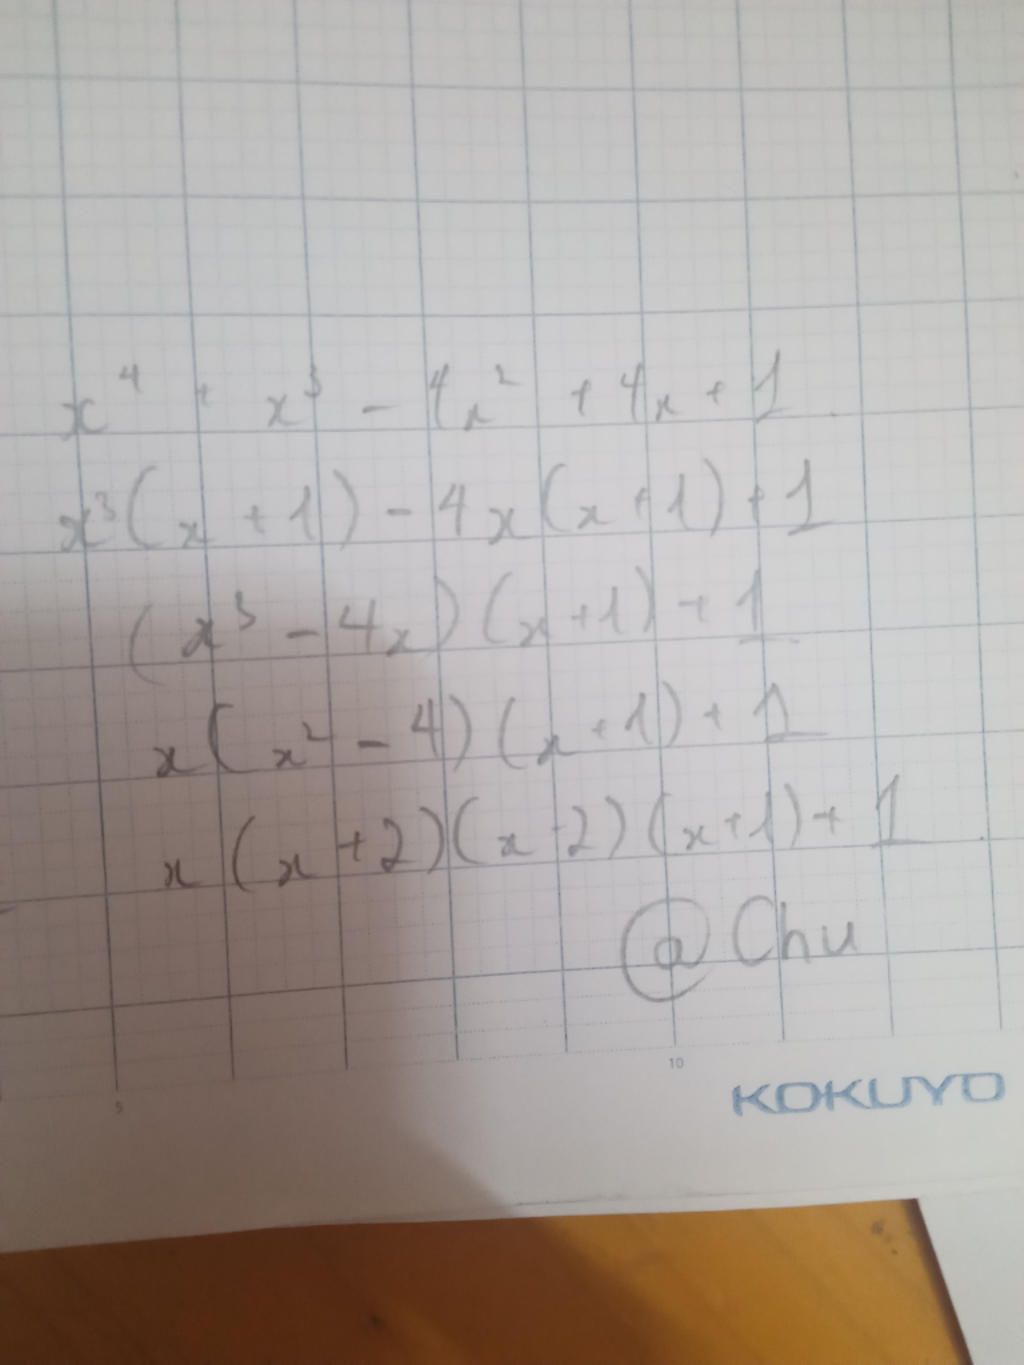 x⁴ + x³ - 4x² + 4x + 1
x³(x + 1) - 4x(x + 1) + 1
(x³ - 4x)(x + 1) + 1
x(x² - 4)(x + 1) + 1
x(x + 2)(x - 2)(x + 1) + 1
@ Chu
5 10
KOKUYO